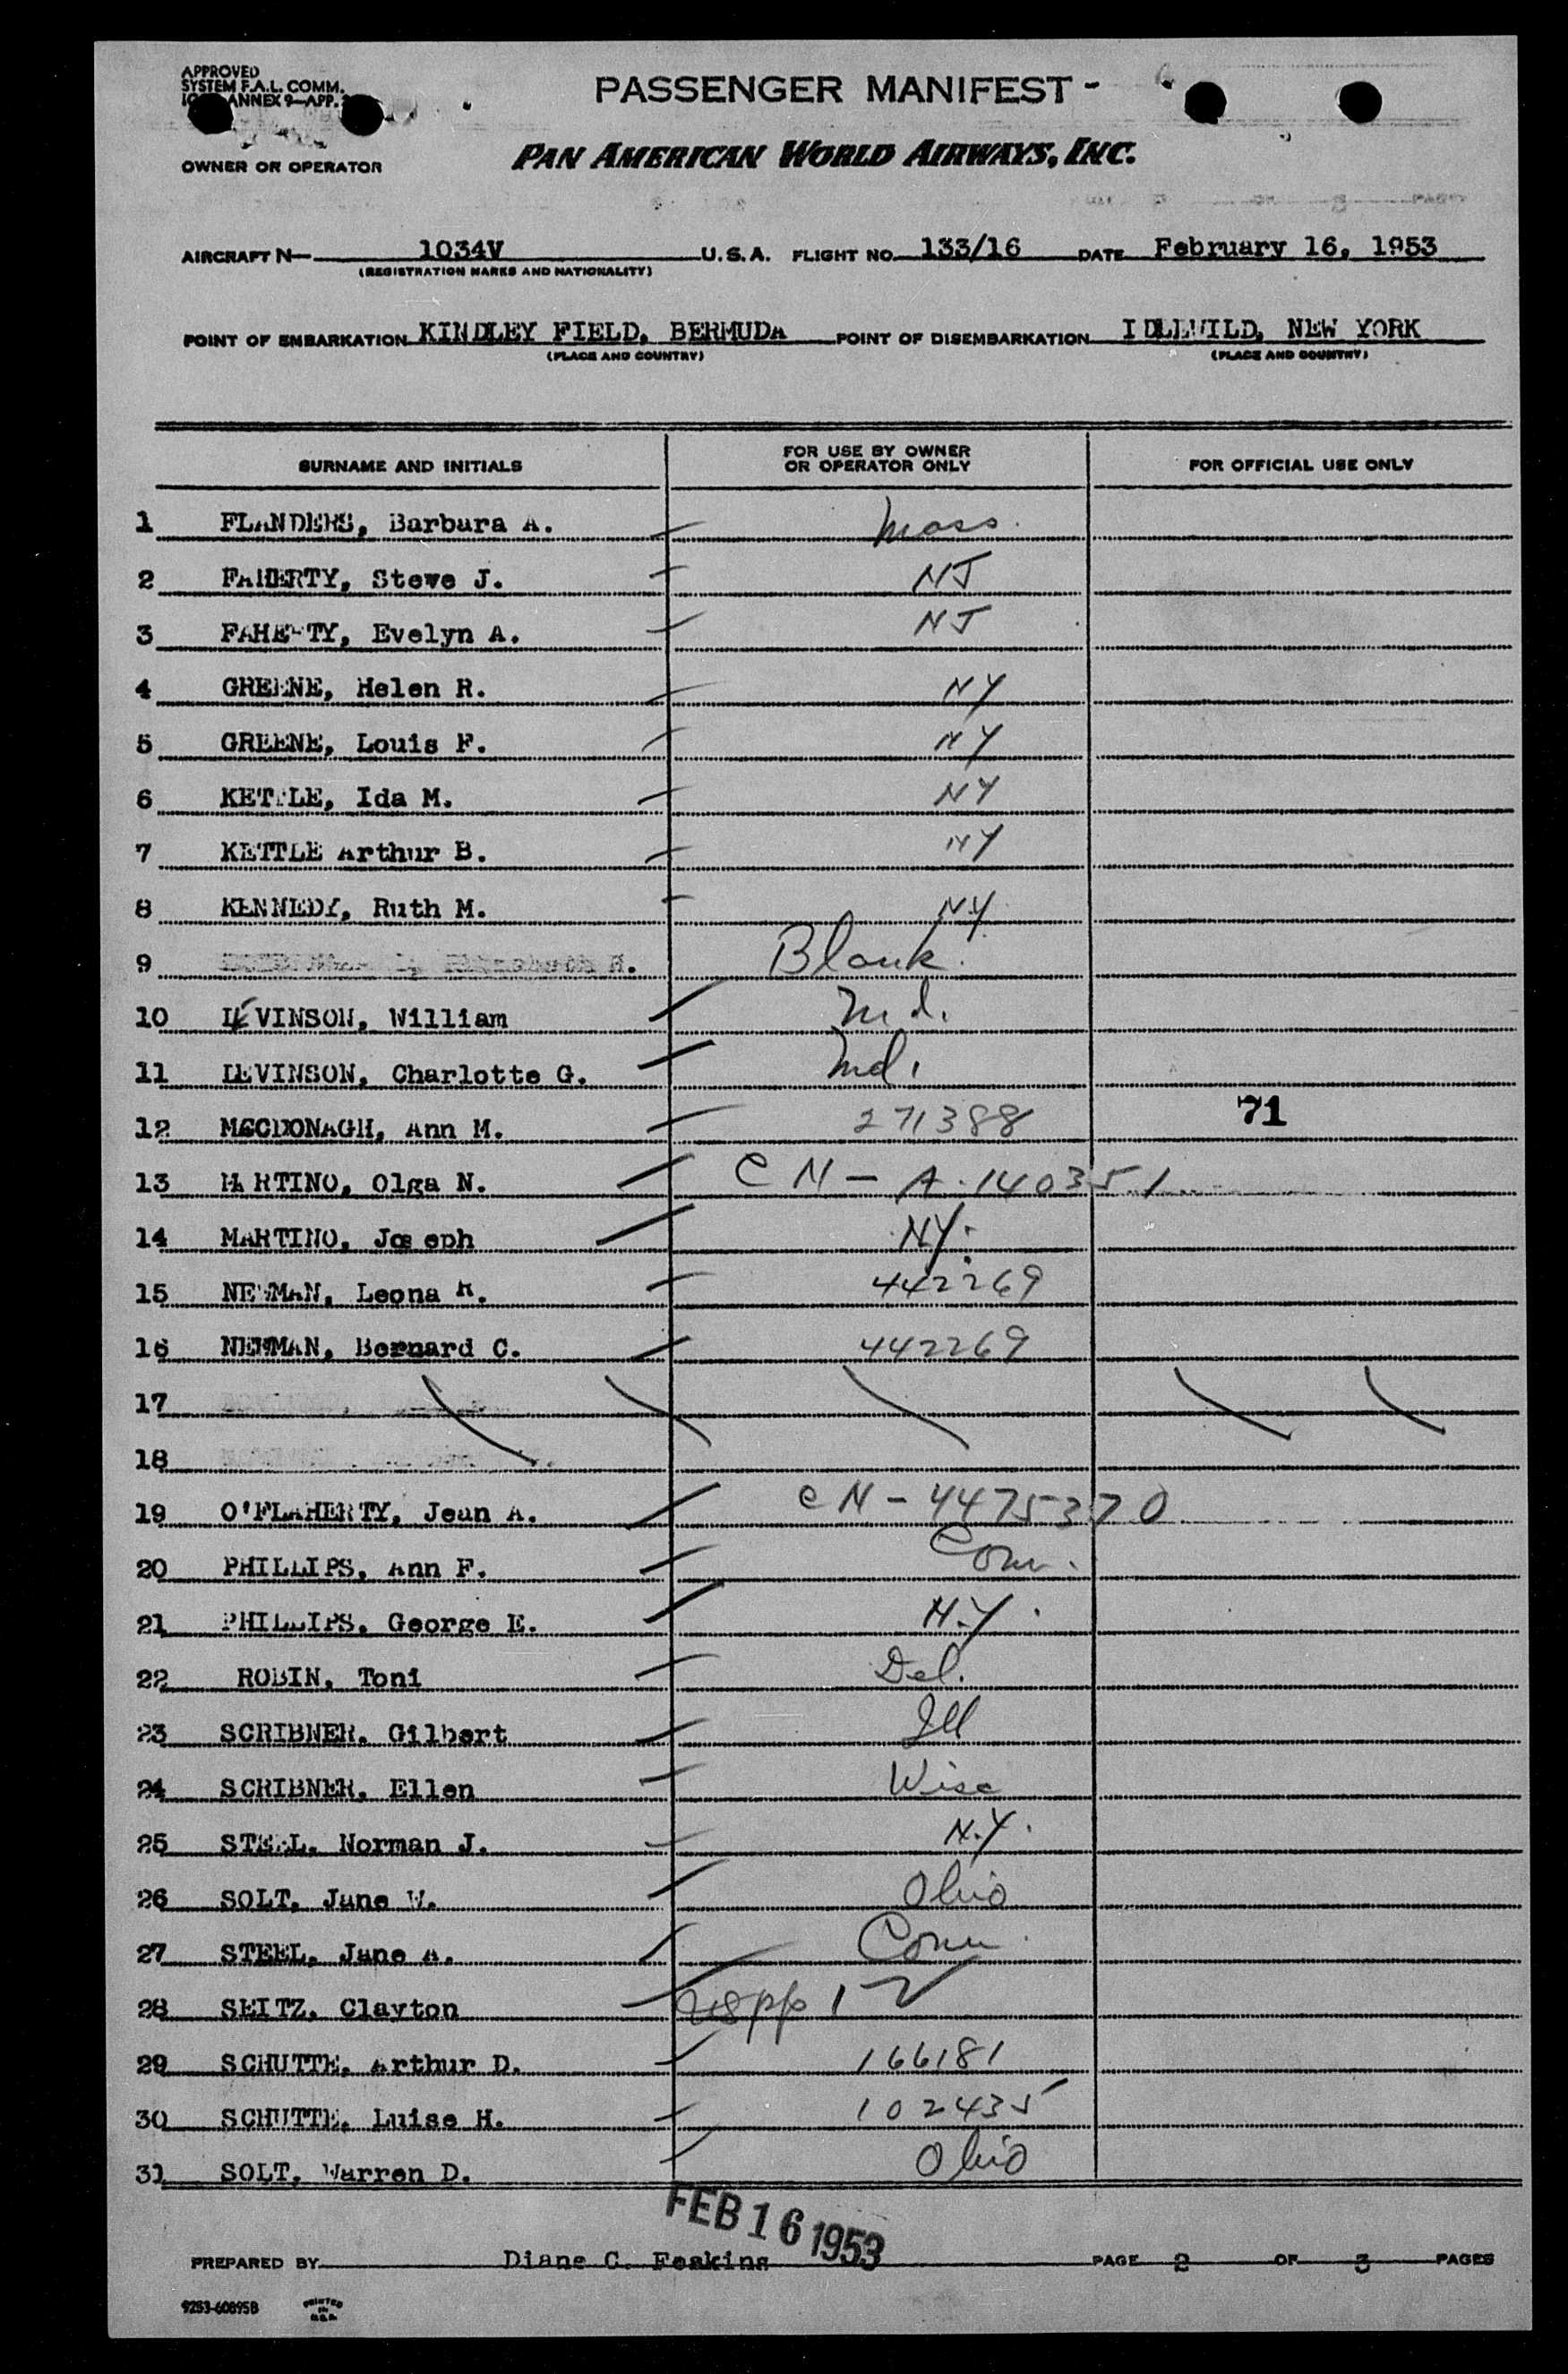 APPROVED
SYSTEM F.A.L. COMM.
ANNEX 9—APP.
PASSENGER MANIFEST -
OWNER OR OPERATOR
PAN AMERICAN WORLD AIRWAYS, INC.
AIRCRAFT N— 1034V U.S.A. FLIGHT NO. 133/16 DATE February 16, 1953
(REGISTRATION MARKS AND NATIONALITY)
POINT OF EMBARKATION KINDLEY FIELD, BERMUDA POINT OF DISEMBARKATION IDLEWILD, NEW YORK
(PLACE AND COUNTRY) (PLACE AND COUNTRY)
SURNAME AND INITIALS FOR USE BY OWNER OR OPERATOR ONLY FOR OFFICIAL USE ONLY
1 FLANDERS, Barbara A. Mass.
2 FAHERTY, Steve J. NJ
3 FAHERTY, Evelyn A. NJ
4 GREENE, Helen R. NY
5 GREENE, Louis F. NY
6 KETTLE, Ida M. NY
7 KETTLE Arthur B. NY
8 KENNEDY, Ruth M. N.Y.
9 Blank.
10 LEVINSON, William Md.
11 LEVINSON, Charlotte G. Md.
12 MCCDONAGH, Ann M. 271388 71
13 MARTINO, Olga N. CN - A-140351
14 MARTINO, Joseph NY.
15 NEWMAN, Leona R. 442269
16 NEWMAN, Bernard C. 442269
17
18
19 O'FLAHERTY, Jean A. CN - 4475370
20 PHILLIPS, Ann F. Conn.
21 PHILLIPS, George E. N.Y.
22 ROBIN, Toni Del.
23 SCRIBNER, Gilbert Ill
24 SCRIBNER, Ellen Wisc
25 STEEL, Norman J. N.Y.
26 SOLT, Jane W. Ohio
27 STEEL, Jane A. Conn.
28 SEITZ, Clayton uspp 1
29 SCHUTTE, Arthur D. 166181
30 SCHUTTE, Luise H. 102435
31 SOLT, Warren D. Ohio
FEB 16 1953
PREPARED BY Diane C. Feakins PAGE 2 OF 3 PAGES
9253-60895B PRINTED IN U.S.A.